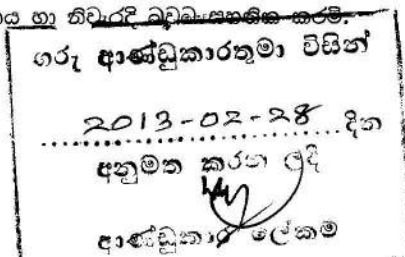 ය හා නිවැරදි බවට සහතික කරමි.
ගරු ආණ්ඩුකාරතුමා විසින්
2013-02-28 දින
අනුමත කරන ලදි
ආණ්ඩුකාර ලේකම්